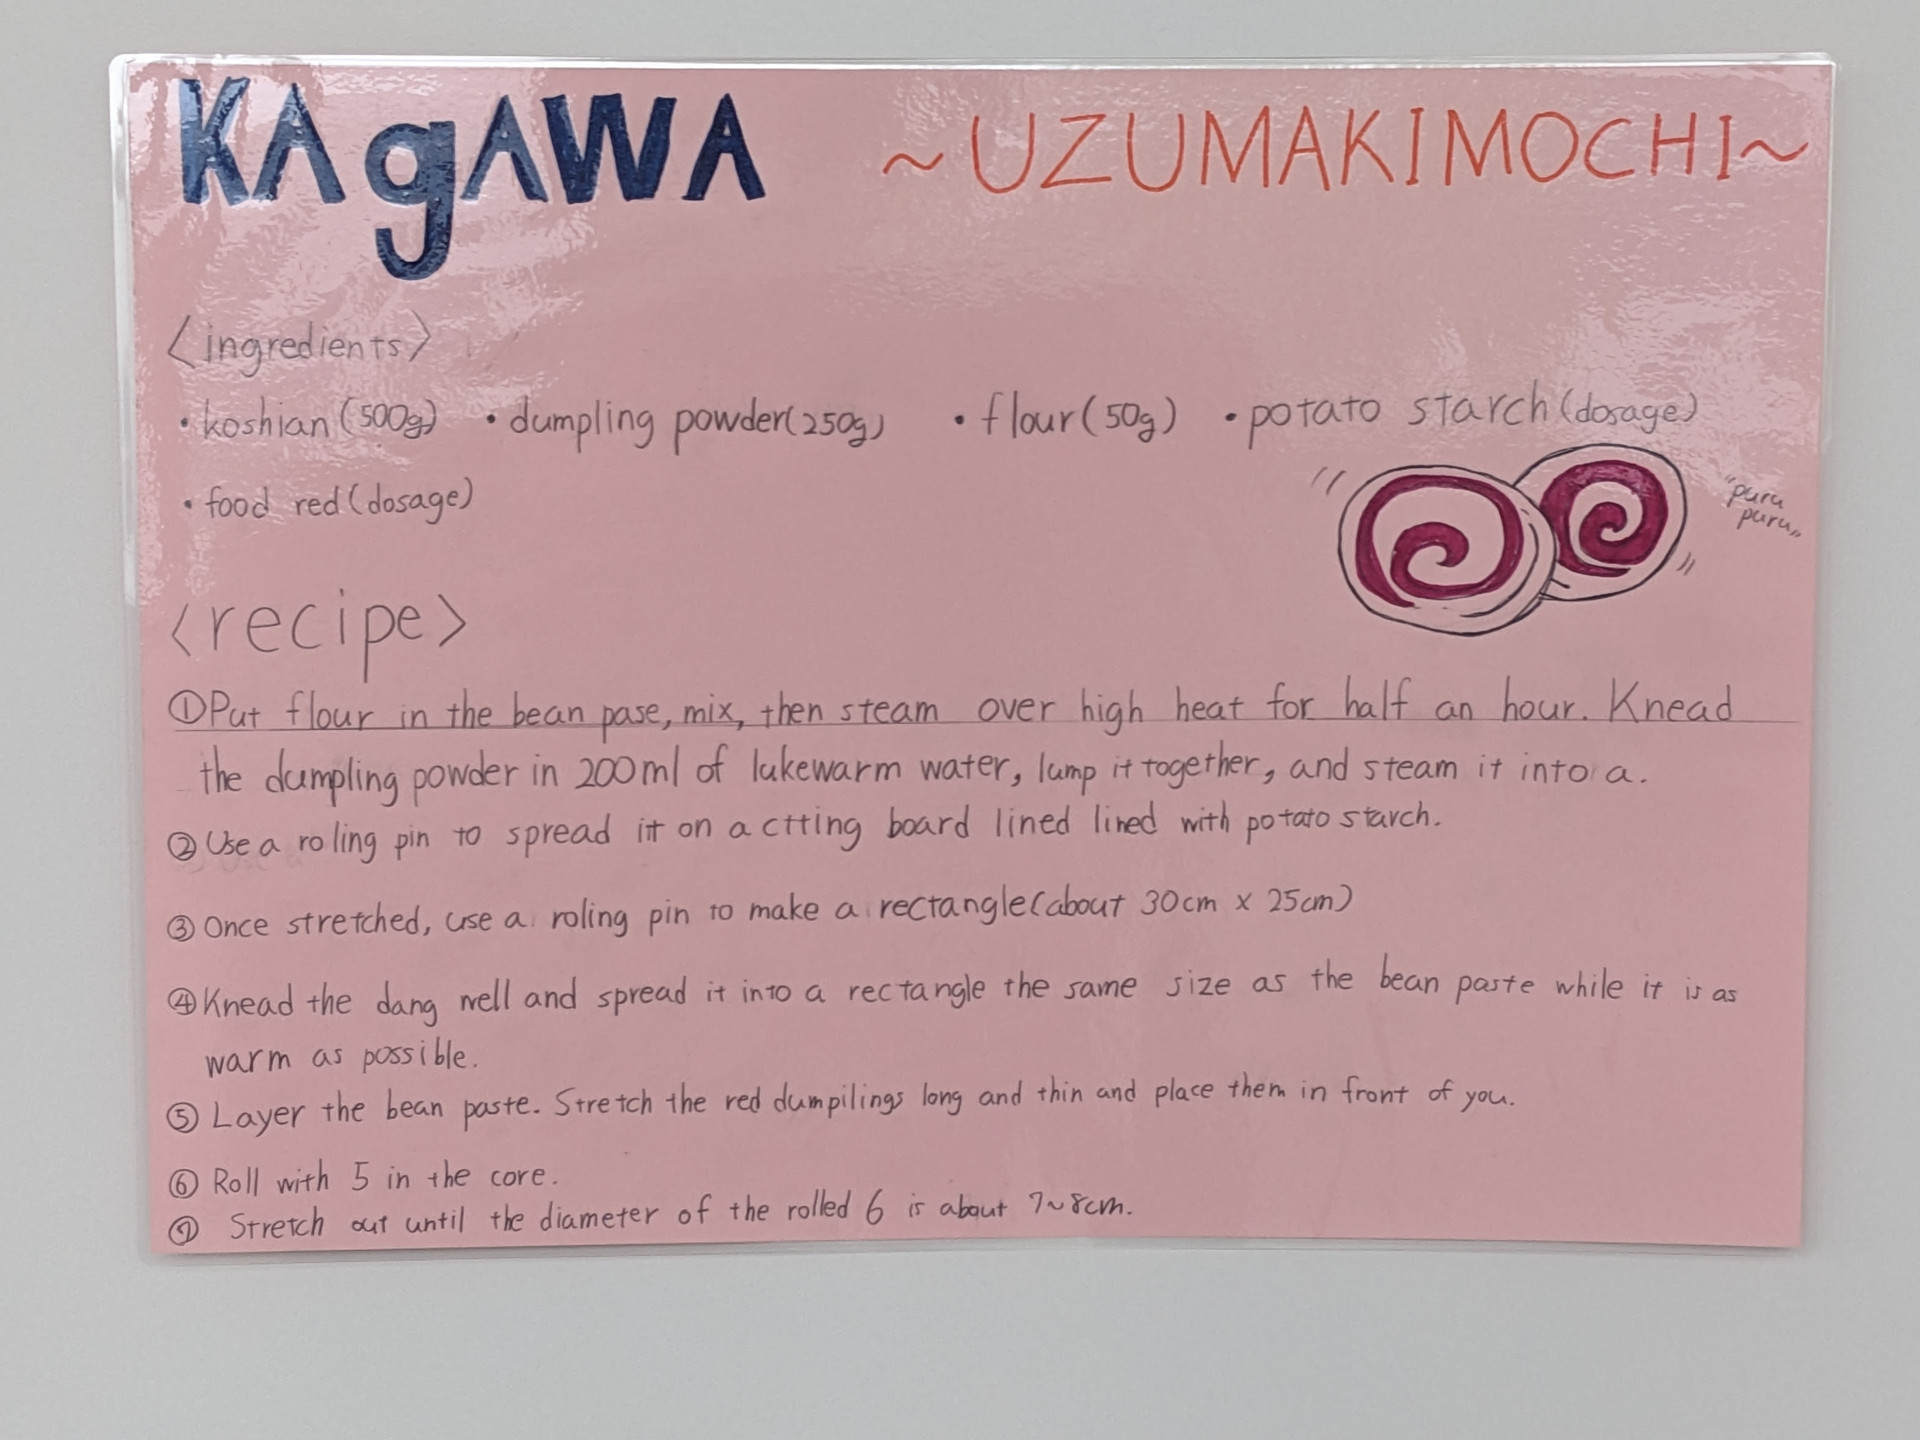 KAgAWA ~UZUMAKIMOCHI~
<ingredients>
・koshian(500g) ・dumpling powder(250g) ・flour(50g) ・potato starch(dosage)
・food red(dosage)
"puru
puru"
<recipe>
①Put flour in the bean pase, mix, then steam over high heat for half an hour. Knead
the dumpling powder in 200ml of lukewarm water, lump it together, and steam it into a.
②Use a roling pin to spread it on a ctting board lined lined with potato starch.
③Once stretched, use a roling pin to make a rectangle(about 30cm x 25cm)
④Knead the dang well and spread it into a rectangle the same size as the bean paste while it is as
warm as possible.
⑤Layer the bean paste. Stretch the red dumpilings long and thin and place them in front of you.
⑥Roll with 5 in the core.
⑦Stretch out until the diameter of the rolled 6 is about 7~8cm.